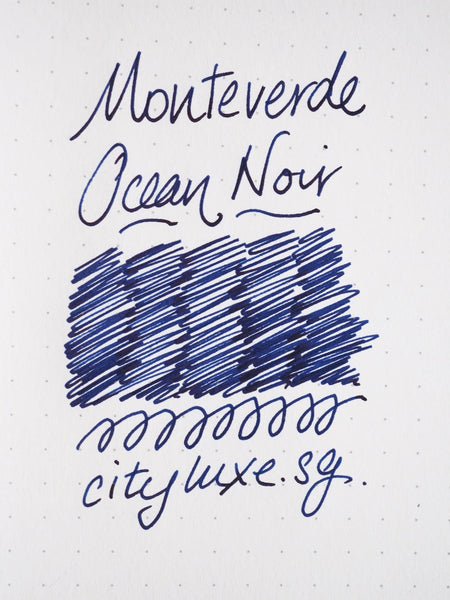 Monteverde
Ocean Noir
cityluxe.sg.